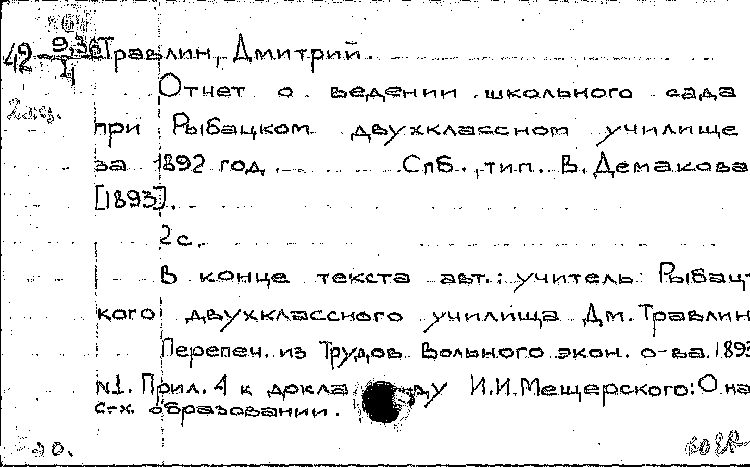 42 9,36/4 Травлин, Дмитрий.
Отчет о ведении школьного сада
2экз.
при Рыбацком двухклассном училище
за 1892 год. Спб., тип. В. Демакова
[1893].
2с.
В конце текста авт.: учитель Рыбац-
кого двухклассного училища Дм. Травлин
Перепеч. из Трудов Вольного экон. о-ва. 1893
№1. Прил. 4 к докладу И.И.Мещерского: О
с-х. образовании.